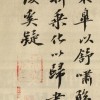 東皋以舒嘯臨
聊乘化以歸盡
復奚疑